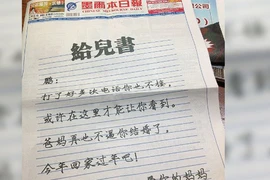 墨爾本日報
給兒書
鵬:
打了好多次电话你也不接,
或许在这里才能让你看到。
爸妈再也不逼你结婚了,
今年回家过年吧!
爱你的妈妈